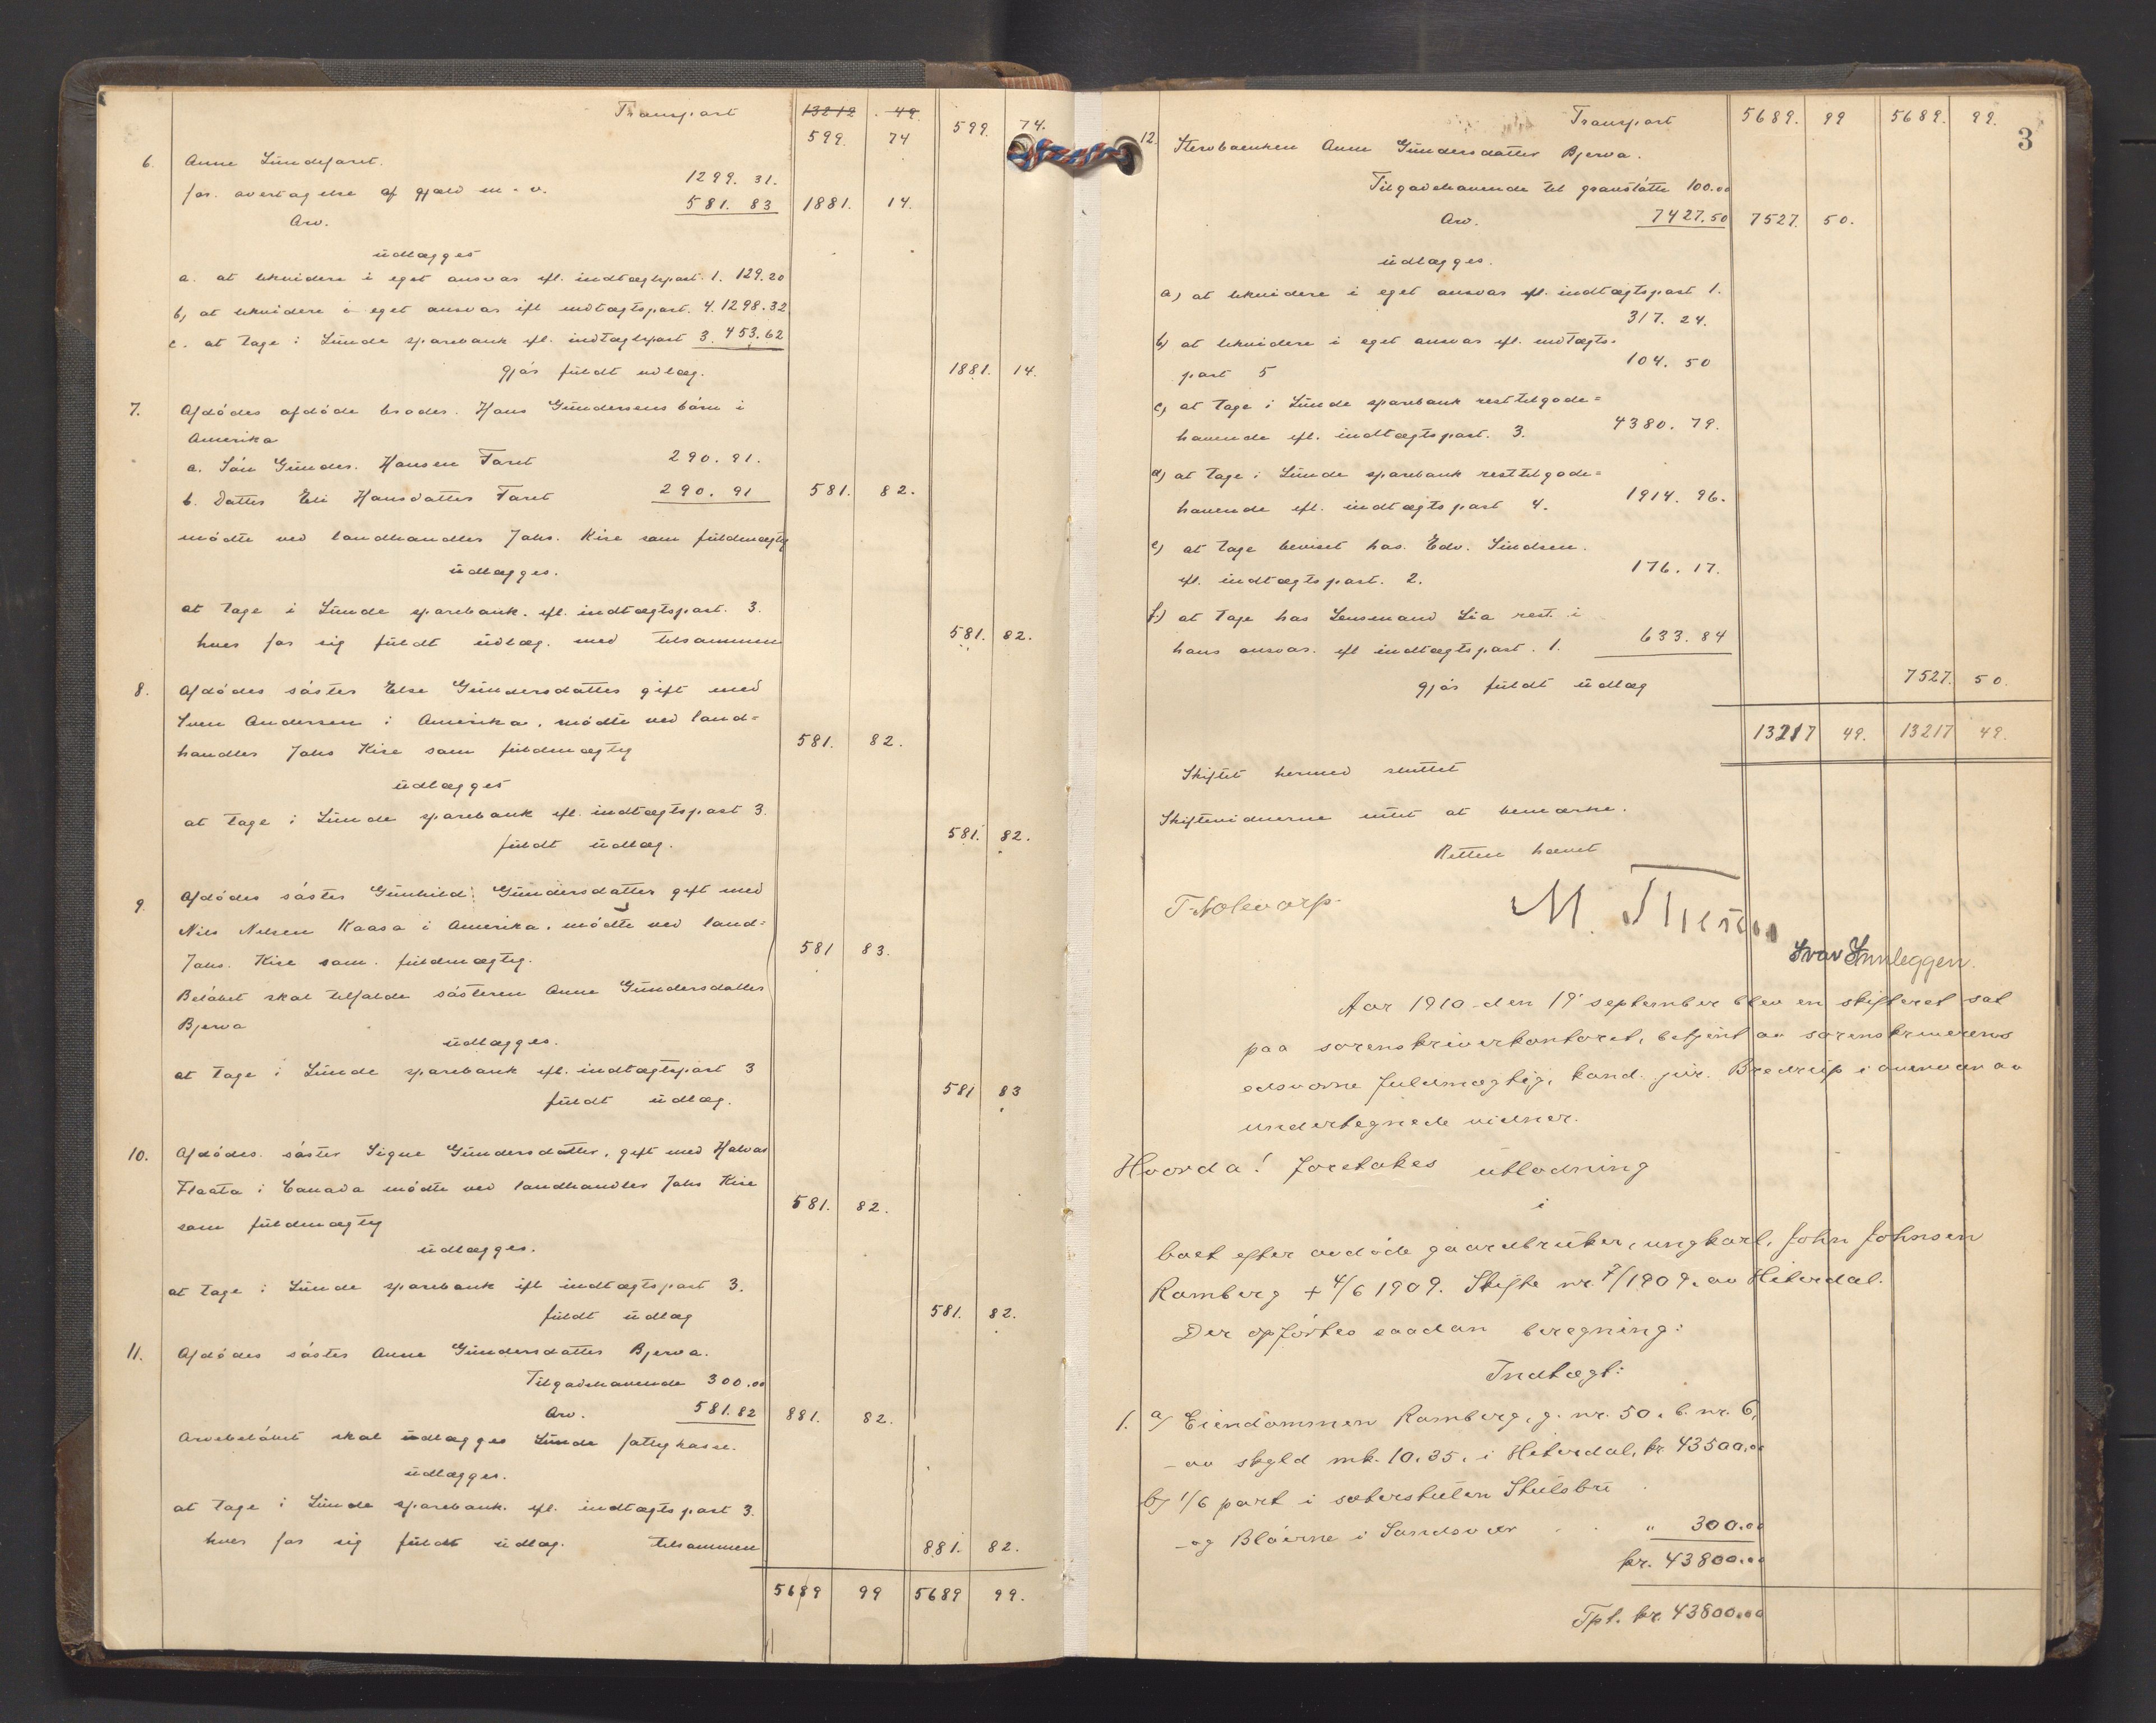 Transport 13212. 49. 599. 74.
599. 74
6. Anne Lundefaret.
for overtagelse af gjæld m. v. 1299. 31.
Arv. 581. 83 1881. 14.
udlægges
a. at likvidere i eget ansvar efl. indtægtspost. 1. 129.20
b, at likvidere i eget ansvar ifl indtægtspost. 4. 1298.32
c. at tage i Lunde sparebank efl. indtægtspost 3. 453.62
gjør fuldt udlæg. 1881. 14.
7. Afdødes afdøde broder. Hans Gundersens børn i
Amerika
a. Søn Gunder. Hansen Faret 290. 91.
b. Datter Eli Hansdatter Faret 290. 91 581. 82.
mødte ved landhandler Johs. Kise som fuldmægtig
udlægges.
at tage i Lunde sparebank. efl. indtægtspost. 3.
hver for sig fuldt udlæg. med tilsammen 581. 82.
8. Afdødes søster Else Gundersdatter gift med
Sven Andersen i Amerika, mødte ved land=
handler Johs Kise som fuldmægtig 581. 82.
udlægges
at tage i Lunde sparebank efl. indtægtspost 3.
fuldt udlæg. 581. 82.
9. Afdødes søster Gunhild Gundersdatter gift med
Nils Nilsen Kaasa i Amerika, mødte ved land=
Johs. Kise som. fuldmægtig. 581 83.
Beløbet skal tilfalde søsteren Anne Gundersdatter
Bjerva
udlægges.
at tage i Lunde sparebank efl. indtægtspost 3
fuldt udlæg. 581 83
10. Afdødes. søster Signe Gundersdatter, gift med Halvor
Flaata i Canada mødte ved landhandler Johs Kise
som fuldmægtig 581. 82.
udlægges.
at tage i Lunde sparebank ifl indtægtspost 3.
fuldt udlæg 581. 82.
11. Afdødes søster Anne Gundersdatter Bjerva.
Tilgodehavende 300.00
Arv. 581.82 881. 82.
Arvebeløbet skal udlægges Lunde fattigkasse.
udlægges.
at tage i Lunde sparebank. efl. indtægtspost 3.
hver for sig fuldt udlæg. tilsammen 881. 82.
5689 99 5689 99.
Transport 5689. 99 5689. 99.
3
12. Stervboenken Anne Gundersdatter Bjerva.
Tilgodehavende til gravstøtte 100.00
Arv. 7427.50 7527. 50.
udlægges.
a) at likvidere i eget ansvar efl. indtægtspost 1.
317. 24.
b) at likvidere i eget ansvar efl. indtægts-
post 5 104. 50
c, at tage i Lunde sparebank resttilgode=
havende efl. indtægtspost. 3. 4380. 79.
d) at tage i Lunde sparebank resttilgode=
havende efl. indtægtspost 4. 1914. 96.
e) at tage beviset hos. Edv. Lindsen.
efl. indtægtspost. 2. 176. 17.
f.) at tage hos Lensmand Lia rest. i
hans ansvar. efl indtægtspost. 1. 633. 84
gjør fuldt udlæg 7527. 50.
13217 49. 13217 49.
Skiftet hermed sluttet
Skiftevidnerne intet at bemærke.
Retten hævet
Aar 1910 den 19' september blev en skifteret sat
paa sorenskriverkontoret, betjent av sorenskriverens
edsvorne fuldmægtig, kand. jur. Bredrup i overvær av
undertegnede vidner.
Hvorda! foretokes utlodning
i
boet efter avdøde gaardbruker, ungkarl, John Johnsen
Ramberg + 4/6 1909. Skifte nr. 7/1909. av Hiterdal.
Der opførtes saadan beregning:
Indtægt:
1. a) Eiendommen Ramberg, g. nr. 50. b. nr. 6,
- av skyld mk. 10.35. i Hiterdal, kr. 43500.00
b) 1/6 part i sæterstulen Stulsbu
- og Blåerne i Sandsvær " 300.00
kr. 43800.00
Tpt. kr. 43800.00